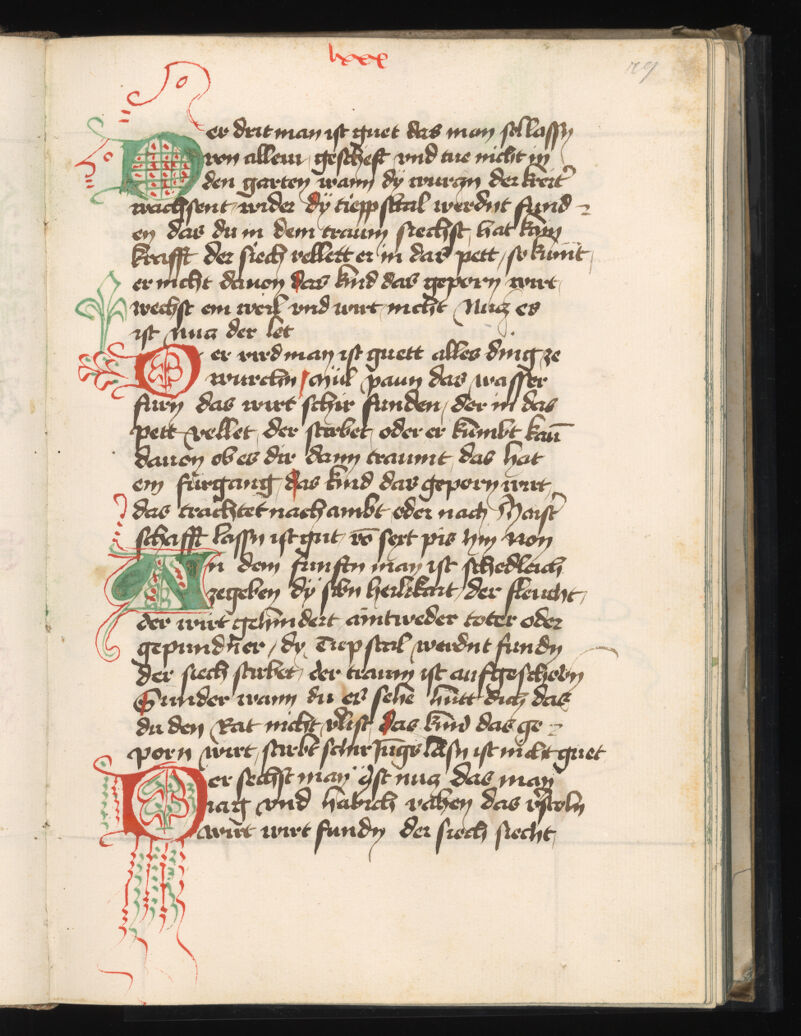 lxxx
79
Der drit man ist guet das man sol lassn
von allem geschefft vnd tue nicht in
den garten wann dÿ wurczn der kreit̉
wachsent wider dÿ tieppstal werdnt fund
en das du in dem traum siechst hat kain
krafft der siech vellett er in das pett so kumt
er nicht dauon das kind das geporn wirt
wechst ein weil vnd wirt nicht Nucz es
ist nucz der let
Der vird man ist guett alles ding ze
wurchn mül paun das wasser
furn das wirt schir funden der in das
pett vellet der stirbet oder er kumbt kaū
dauon ob es dir dann traumt das hat
ein fürgang das kind das geporn wirt
das trachtet nach ambt oder nach Maist̉
schafft lassn ist gut vō sext pis hin Non
An dem funften man ist schedleich
zegeben dÿ sibn heilikait der fleucht
der wirt gehindert aintweder toter oder
gepundn̄er dy Tiepstal werdnt fundn
der siech stirbet der traum ist aufgeschobn
Sunder wann du es sehe hutt dich das
du den Rat nicht v̉list das kind das ge
porn wirt stirbt schir Jungs lassn ist nicht guet
Der sechst man ÿst nucz das man
iag vnd habich vahen das v̉stoln
wirt wirt fundn der siech siecht